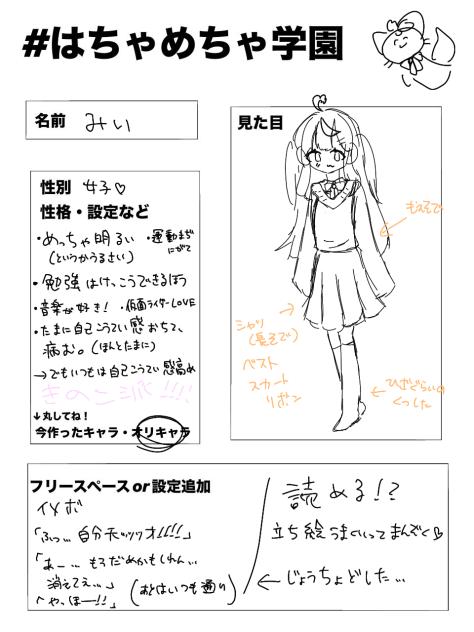 #はちゃめちゃ学園
名前 みい
見た目
性別 女子♡
性格・設定など
・めっちゃ明るい
(というかうるさい)
・運動まぢ
にがて
・勉強はけっこうできるほう
・音楽が好き!
・仮面ライダーLOVE
・たまに自己こうてい感おちて、
病む。(ほんとたまに)
→でもいつもは自己こうてい感高め
きのこ派!!!!
↓丸してね!
今作ったキャラ・オリキャラ
もえそで
シャツ
(長そで)
ベスト
スカート
リボン
ひざぐらいの
くつした
フリースペースor設定追加
イメボ
「ふっ…自分天ッッッ才!!!!」
「あー…もうだめかもしれん…
消えてえ…」
「やっほーー!!」
(あとはいつも通り)
読める!?
立ち絵うまくいってまんぞく♡
←じょうちょどした…